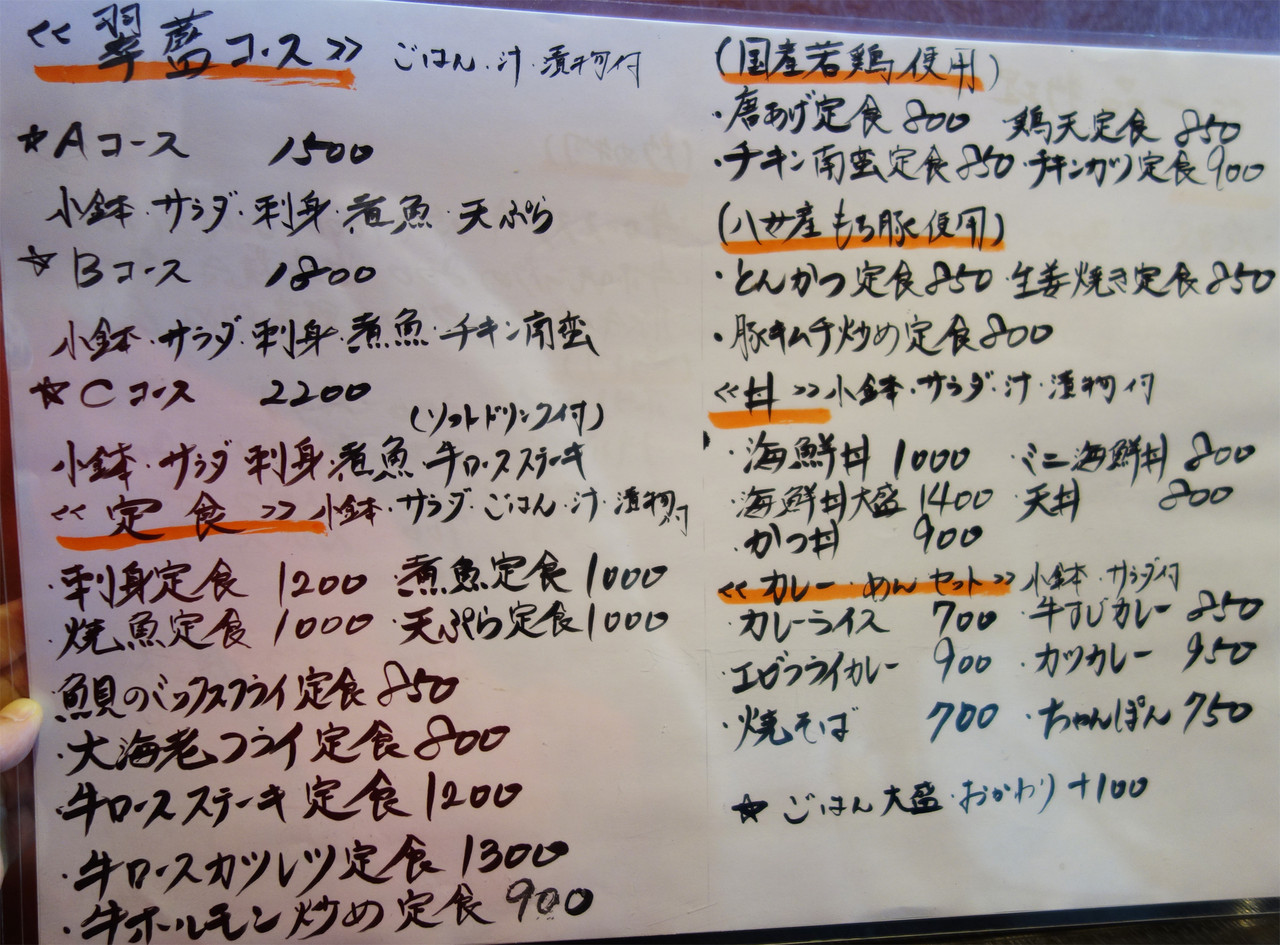 ≪翠藍コース≫ ごはん・汁・漬物付
☆Aコース 1500
小鉢・サラダ・刺身・煮魚・天ぷら
☆Bコース 1800
小鉢・サラダ・刺身・煮魚・チキン南蛮
☆Cコース 2200
(ソフトドリンク付)
小鉢・サラダ・刺身・煮魚・牛ロースステーキ
≪定食≫ 小鉢・サラダ・ごはん・汁・漬物付
・刺身定食 1200 ・煮魚定食 1000
・焼魚定食 1000 ・天ぷら定食 1000
・魚貝のミックスフライ定食 850
・大海老フライ定食 800
・牛ロースステーキ定食 1200
・牛ロースカツレツ定食 1300
・牛ホルモン炒め定食 900
(国産若鶏使用)
・唐あげ定食 800 鶏天定食 850
・チキン南蛮定食 850 ・チキンカツ定食 900
(八女産もち豚使用)
・とんかつ定食 850 ・生姜焼き定食 850
・豚キムチ炒め定食 800
≪丼≫ 小鉢・サラダ・汁・漬物付
・海鮮丼 1000 ・ミニ海鮮丼 800
・海鮮丼大盛 1400 ・天丼 800
・かつ丼 900
≪カレー・めんセット≫ 小鉢・サラダ付
・カレーライス 700 ・牛すじカレー 850
・エビフライカレー 900 ・カツカレー 950
・焼そば 700 ・ちゃんぽん 750
☆ごはん大盛・おかわり +100